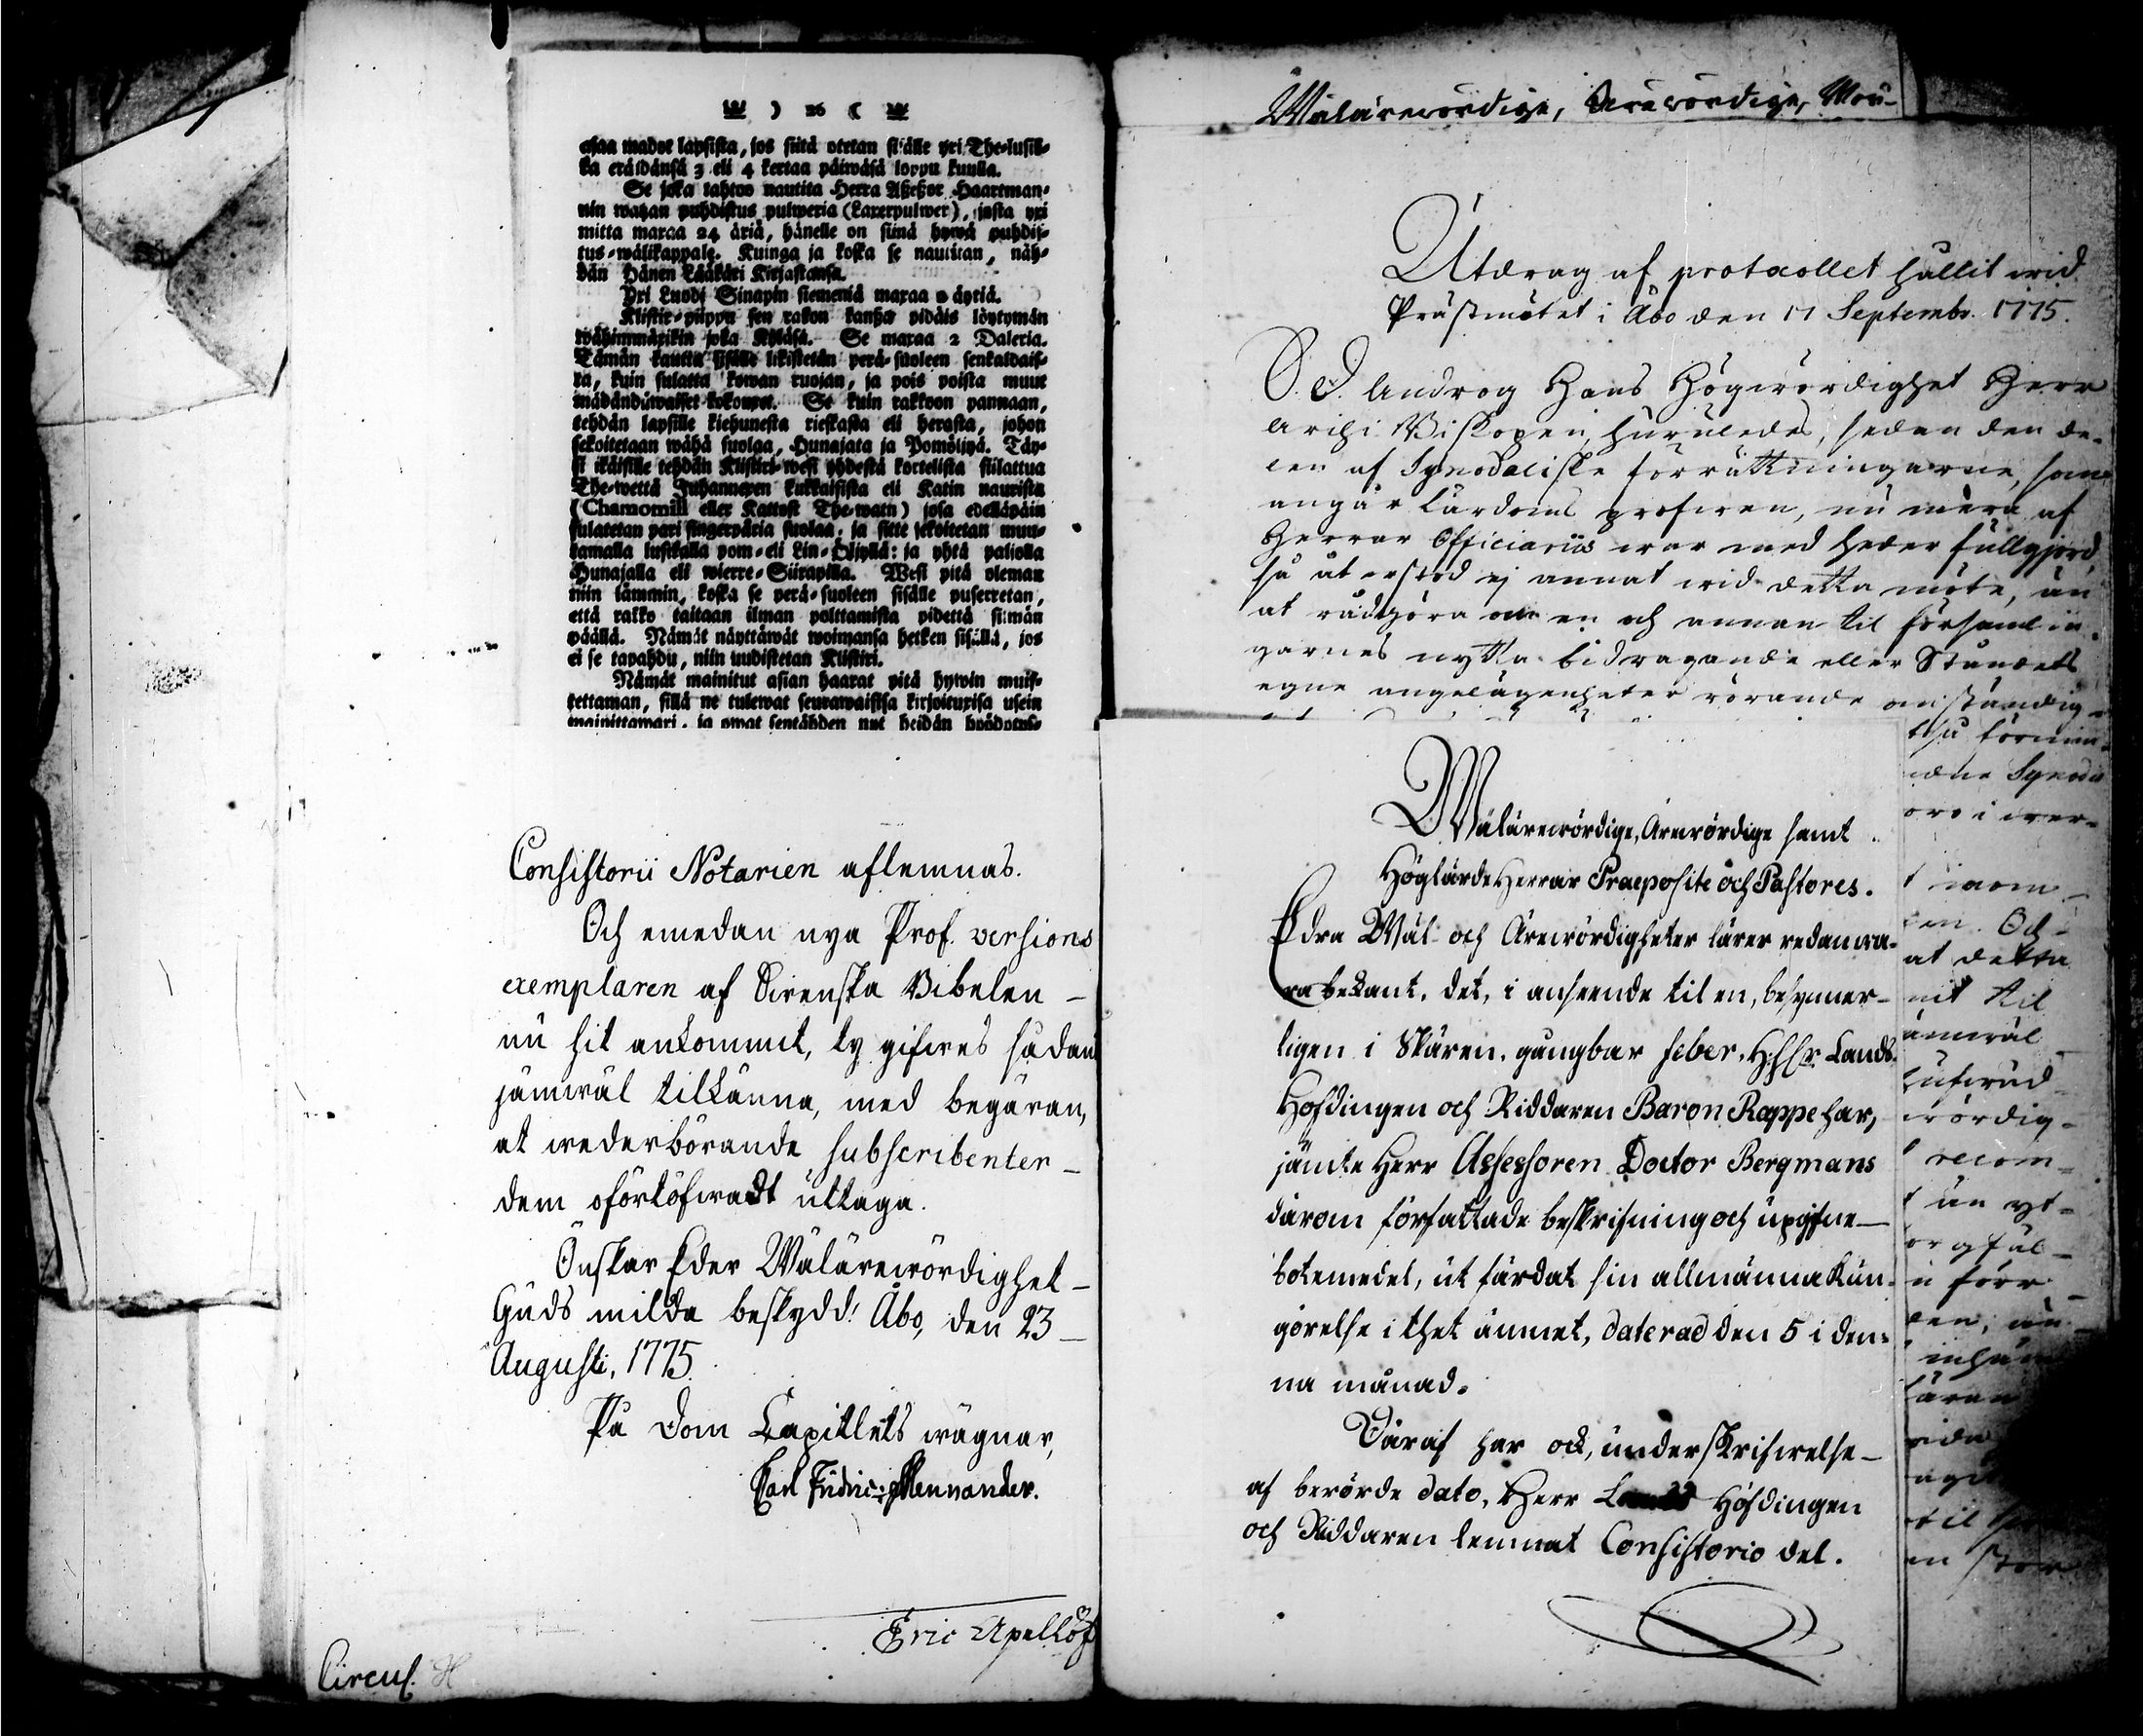 ) 26 (
ajaa madot lapsista, jos siitä otetan sisälle yxi The-lusik-
ka erälänsä 3 eli 4 kertaa päiwäsä loppu kuulla.
Se joka tahtoo nautita Herra Aßeßor Haartman-
nin watzan puhdistus pulweria (Laxerpulwer), josta yxi
mitta maxaa 24 äriä, hänelle on siinä hywä puhdis-
tus-wälikappale. Kuinga ja koska se nautitan, näh-
dän Hänen Lääkäri Kirjastansa.
Yxi Luodi Sinapin siemeniä maxaa äyriä.
Klistir-piippu sen rakon kanßa pidäis löytymän
wähimmäxikin joka Kyläsä. Se maxaa 2 Daleria.
Tämän kautta sisälle likistetän perä-suoleen senkaldais-
ta, kuin sulatta kowan ruojan, ja pois poista muut
mädändüwäiset kokouxet. Se kuin rakkoon pannaan,
tehdän lapsille kiehunesta rieskasta eli herasta, johon
sekoitetaan wähä suolaa, Hunajata ja Pomöljyä. Täy-
si ikäisille tehdän Klistiri-wesi yhdestä kortelista siilattua
The-wettä Juhannexen kukkaisista eli Katin naurista
(Chamomill eller Kattost The-watn) josa edelläpäin
sulatetan pari fingerpäriä suolaa, ja sitte sekoitetan muu-
tamalla lusikalla pom-eli Lin-Öljyllä: ja yhtä paljolla
Hunajalla eli wierre-Siirapilla. Wesi pitä oleman
niin lämmin, koska se perä-suoleen sisälle puserretan,
että rakko taitaan ilman polttamista pidettä silmän
päällä. Nämät näyttäwät woimansa hetken sisällä, jos
ei se tapahdu, niin uudistetan Klistiri.
Nämät mainitut asian haarat pitä hywin muis-
tettaman, sillä ne tulewat seurawaisisa kirjoituxisa usein
mainittawaxi, ja owat sentähden nyt heidän
Consistorii Notarien aflemnas.
Och emedan nya Prof. versions
exemplaren af Svenska Bibelen –
nu hit ankommit, ty gifwes sådant
jämwäl tilkänna, med begäran,
at wederbörande subscribenter –
dem oförtöfwadt uttaga.
Önskar Eder Wälärewördighet –
Guds milda beskydd! Åbo, den 23 –
Augusti, 1775.
På Dom Capitlets wägnar,
Carl Fridric: Mennander.
Eric Apellöf
Circul.
Wälärewördige, Ärewördige,
Utdrag af protocollet hållit wid
Prästmötet i Åbo den 17 Septembr. 1775.
S. D. Androg Hans Högwördighet Herr
Archi Biskopen, huruledes, sedan den de-
len af Synodaliske förrättningarne, som
angår Lärdoms profwen, nu mera af
Herrar Officiariis war med heder fullgjord,
så återstod ej annat wid detta möte, än
at rådgöra om en och annan til församlin-
garnes nytta bidragande eller Ståndets
egne angelägenheter rörande omständig-
Wälärewördige, Ärewördige samt
Höglärde Herrar Praeposite och Pastores.
Edra Wäl- och Ärewördigheter lärer redan wa-
ra bekant, det, i anseende til en, besynner-
ligen i Skären, gångbar feber, H:H:r Lands
Höfdingen och Riddaren Baron Rappe har,
jämte Herr Assessoren Doctor Bergmans
därom författade beskrifning och upgifne –
botemedel, ut färdat sin allmänna Kun-
görelse i thet ämnet, daterad den 5 i den-
na månad.
Däraf har ock, underskrifwelse –
af berörde dato, Herr Lands Höfdingen
och Riddaren lemnat Consistorio del.
tså förnim-
oro i wer-
t inom –
en. Och –
at detta
nit til
ämwäl
hufwud-
wördig-
t recom-
t än yt-
orgfäl-
u förr
den, än
til
en stor